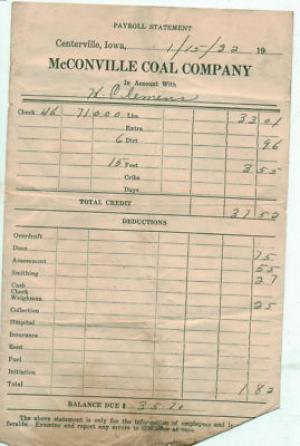 PAYROLL STATEMENT
Centerville, Iowa, 1/15/22 19
McCONVILLE COAL COMPANY
In Account With
H Clemens
Check 46 71000 Lbs. 33 01
Extra
6 Dirt 96
15 Feet 3 55
Cribs
Days
TOTAL CREDIT 37 52
DEDUCTIONS
Overdraft
Dues 75
Assessment 55
Smithing 27
Cash
Check
Weighman 25
Collection
Hospital
Insurance
Rent
Fuel
Initiation
Total 1 82
BALANCE DUE $ 35.70
The above statement is only for the information of employees and is
ferable. Examine and report any errors to this office at once.